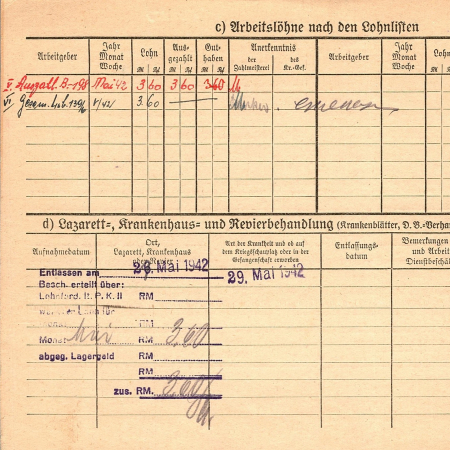 c) Arbeitslöhne nach den Lohnlisten
Arbeitgeber Jahr Monat Woche Lohn Ausgezahlt Guthaben Anerkenntnis Arbeitgeber Jahr Monat Woche Lohn
der Zahlmeisterei des Kr.-Gef.
M Pf M Pf M Pf M Pf
V. Auszahl. B. 198 Mai 42 3 60 3 60 3 60
VI V/42 3.60
d) Lazarett-, Krankenhaus- und Revierbehandlung (Krankenblätter, D. B.-Verha
Aufnahmedatum Ort, Lazarett, Krankenhaus oder Revier Art der Krankheit und ob auf dem Kriegsschauplatz oder in der Gefangenschaft erworben Entlassungsdatum Bemerkungen und Arbeit Dienstbeschä
Entlassen am 26. Mai 1942 29. Mai 1942
Besch. erteilt über:
Lohnford. lt. P. K. II RM
Monat Mai RM 3,60
abgeg. Lagergeld RM
RM
zus. RM. 3,60